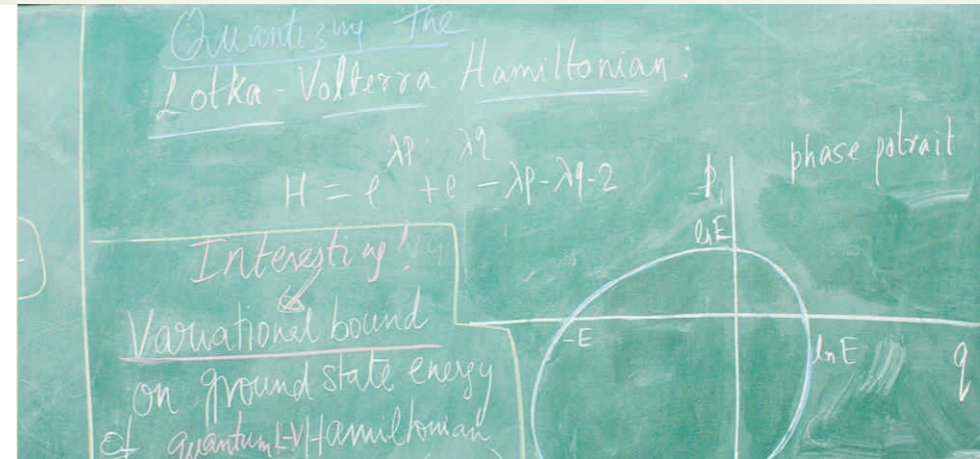 Quantizing the
Lotka-Volterra Hamiltonian:
H = e^λp + e^λq - λp - λq - 2
phase potrait
p
ln E
-E
ln E
q
Interesting!
Variational bound
on ground state energy
of quantum L-V Hamiltonian